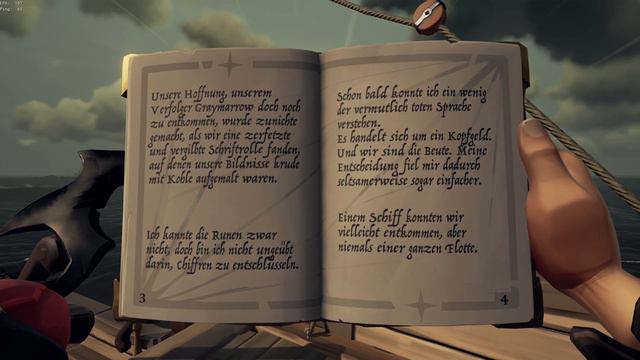 FPS: 107
Ping: 43
Unsere Hoffnung, unserem
Verfolger Graymarrow doch noch
zu entkommen, wurde zunichte
gemacht, als wir eine zerfetzte
und vergilbte Schriftrolle fanden,
auf denen unsere Bildnisse krude
mit Kohle aufgemalt waren.
Ich kannte die Runen zwar
nicht, doch bin ich nicht ungeübt
darin, Chiffren zu entschlüsseln.
3
Schon bald konnte ich ein wenig
der vermutlich toten Sprache
verstehen.
Es handelt sich um ein Kopfgeld.
Und wir sind die Beute. Meine
Entscheidung fiel mir dadurch
seltsamerweise sogar einfacher.
Einem Schiff konnten wir
vielleicht entkommen, aber
niemals einer ganzen Flotte.
4